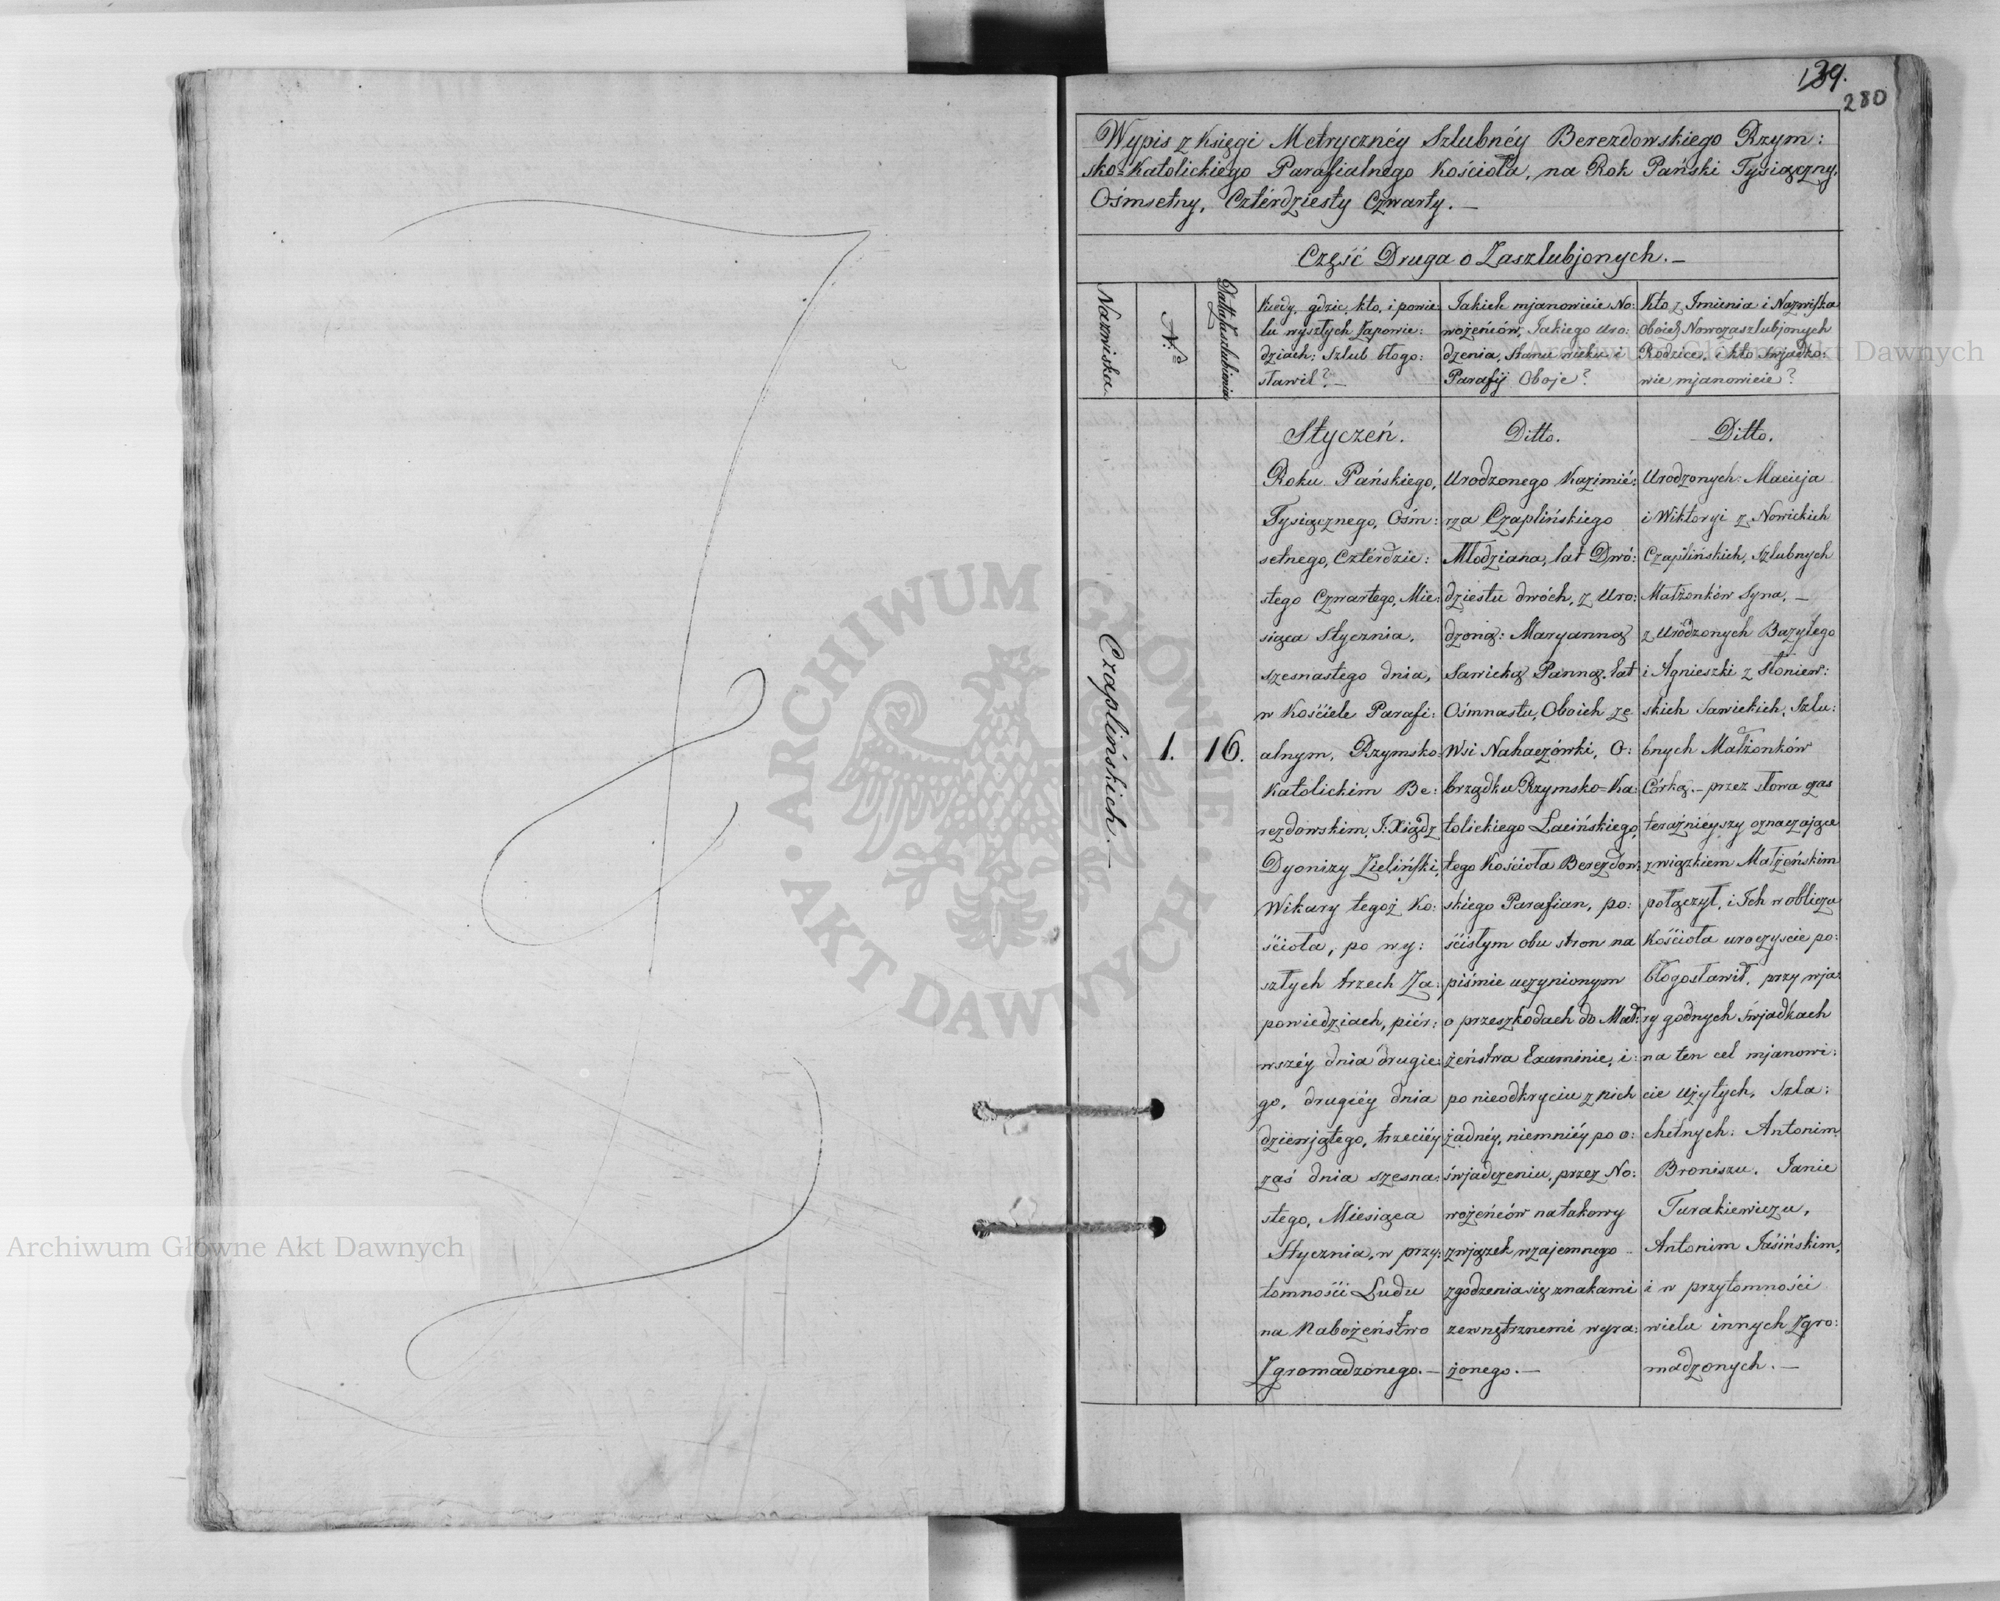 139.
280
Wypis z Księgi Metrycznéy Szlubnéy Berezdowskiego Rzym:
sko=Katolickiego Parafialnego Kościoła, na Rok Pański Tysiączny,
Ośmsetny, Cztérdziesty Czwarty. —
Część Druga o Zaszlubjonych. —
Nazwiska
N:º
Datta zaszlubienia
Kiedy, gdzie, kto, i powie:
lu wyszłych Zapowie:
dziach; Szlub błogo:
sławił? —
Jakich mjanowicie No:
wożeńców, Jakiego Uro:
dzenia, Stanu wieku i
Parafij Oboje?
Kto z Imienia i Nazwiska
Obojej Nowozaszlubjonych
Rodzice, i kto świadko:
wie mjanowicie?
Czaplińskich. —
1.
16.
Styczeń.
Roku Pańskiego,
Tysiącznego, Ośm:
setnego, Cztérdzie:
stego Czwartego, Mie:
siąca Stycznia,
szesnastego dnia,
w Kościele Parafi:
alnym, Rzymsko
Katolickim Be:
rezdowskim, J: Xiądz
Dyonizy Zieliński,
Wikary tegoż Ko:
ścioła, po wy:
szłych trzech Za:
powiedziach, piér:
wszéy dnia drugie:
go, drugiéy dnia
dziewjątego, trzeciéy
zaś dnia szesna:
stego, Miesiąca
Stycznia, w przy:
tomności Ludu
na Nabożeństwo
Zgromadzonego. —
Ditto.
Urodzonego Kazimié:
rza Czaplińskiego
Młodziana, lat Dwó:
dziestu dwóch, z Uro:
dzoną: Maryanną
Sawicką Panną, lat
Ośmnastu, Oboich ze
Wsi Nahaczówki, O:
brządku Rzymsko=Ka:
tolickiego Łacińskiego,
tego Kościoła Berezdow:
skiego Parafian, po:
ścisłym obu stron na
piśmie uczynionym
o przeszkodach do Mał:
żeństwa Examinie, i:
po nieodkryciu z nich
żadnéy, niemniéy po o:
świadczeniu, przez No:
wożeńców na takowy
zwjązek wzajemnego
zgodzenia się znakami
zewnętrznemi wyra:
żonego. —
Ditto.
Urodzonych: Macieja
i Wiktoryi z Nowickich
Czaplińskich, Szlubnych
Małżonków Syna, —
z Urodzonych Bazylego
i Agnieszki z Słoniew:
skich Sawickich, Szlu:
bnych Małżonków
Córką. — przez słowa czas
teraźniéyszy oznaczające
związkiem Małżeńskim
połączył, i Ich w obliczu
Kościoła uroczyscie po:
błogosławił, przy wja:
ry godnych świadkach
na ten cel mjanowi:
cie użytych, Szla:
chetnych: Antonim
Broniszu, Janie
Turakiewiczu,
Antonim Jasińskim,
i w przytomności
wielu innych Zgro:
madzonych. —
ARCHIWUM GŁÓWNE · AKT DAWNYCH ·
Archiwum Główne Akt Dawnych
Archiwum Główne Akt Dawnych